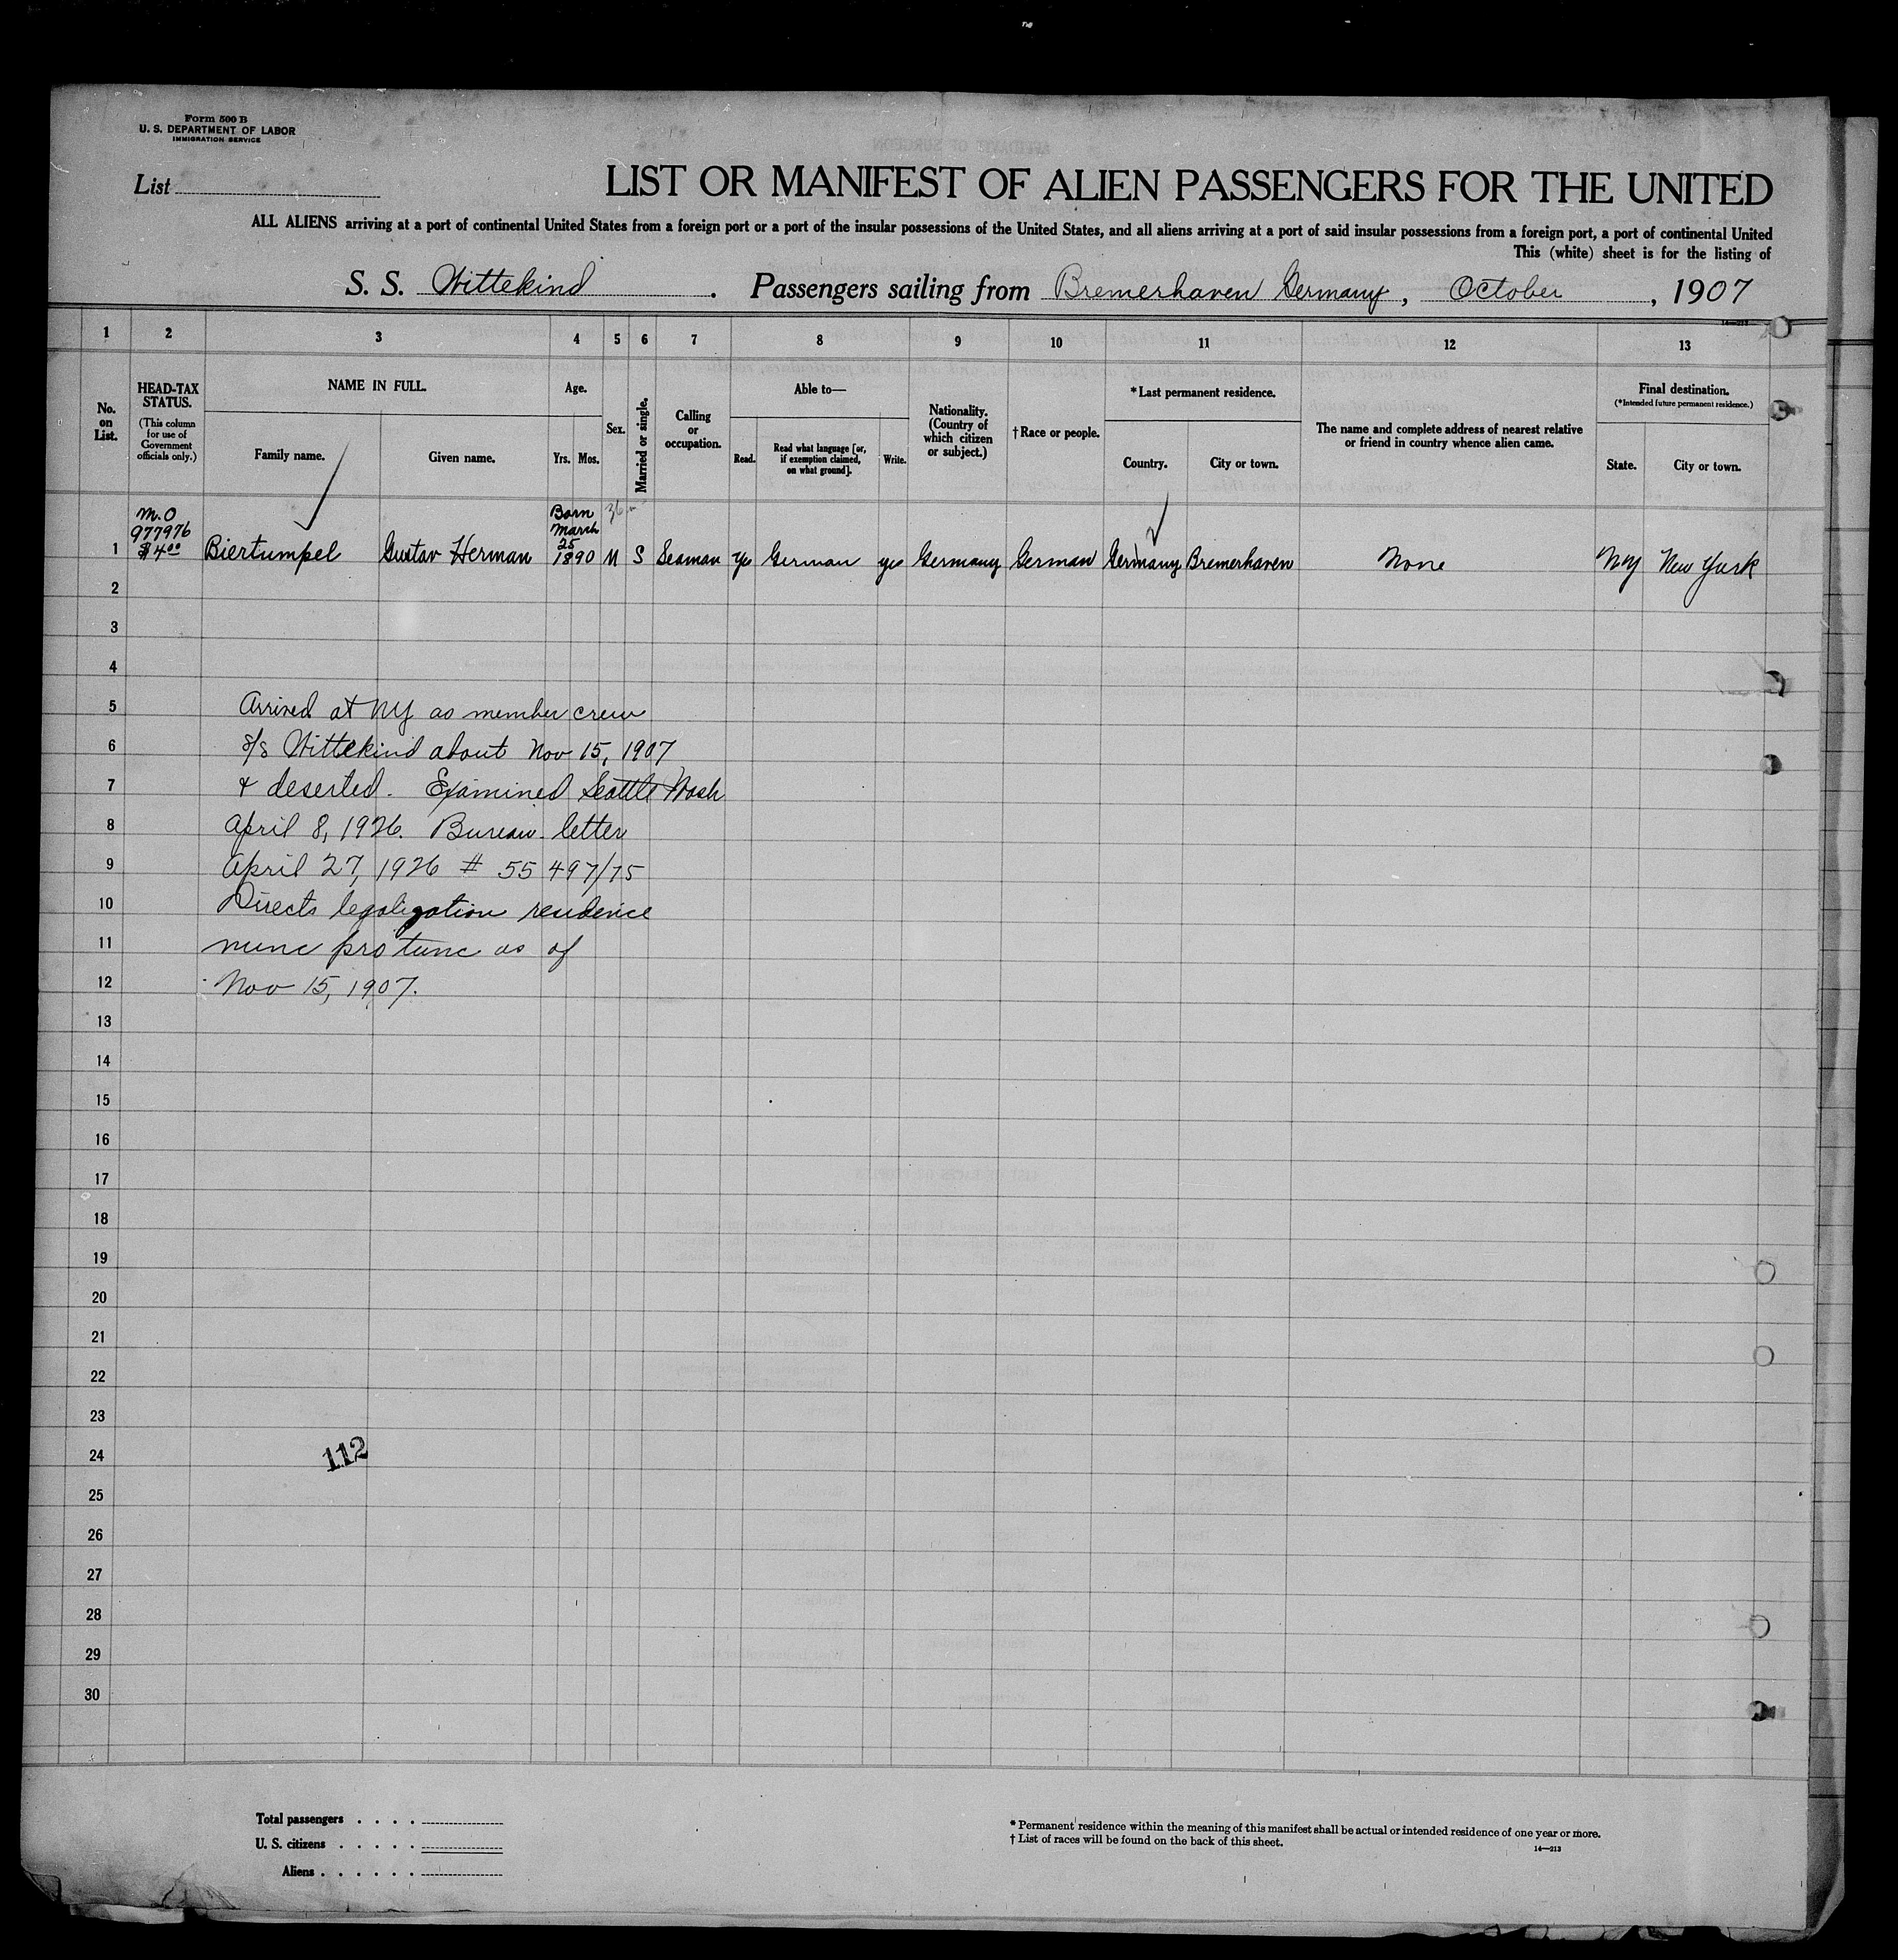 Form 500 B
U. S. DEPARTMENT OF LABOR
IMMIGRATION SERVICE
List
LIST OR MANIFEST OF ALIEN PASSENGERS FOR THE UNITED
ALL ALIENS arriving at a port of continental United States from a foreign port or a port of the insular possessions of the United States, and all aliens arriving at a port of said insular possessions from a foreign port, a port of continental United
This (white) sheet is for the listing of
S. S. Wittekind. Passengers sailing from Bremerhaven Germany, October, 1907
14—213
1 2 3 4 5 6 7 8 9 10 11 12 13
No. on List.
HEAD-TAX STATUS.
(This column for use of Government officials only.)
NAME IN FULL.
Family name. Given name.
Age.
Yrs. Mos.
Sex.
Married or single.
Calling or occupation.
Able to—
Read.
Read what language [or, if exemption claimed, on what ground].
Write.
Nationality. (Country of which citizen or subject.)
†Race or people.
*Last permanent residence.
Country. City or town.
The name and complete address of nearest relative or friend in country whence alien came.
Final destination.
(*Intended future permanent residence.)
State. City or town.
M.O
977976
$4.00
Born
March
25
1890
1 Biertumpel Gustav Herman M S Seaman yes German yes Germany German Germany Bremerhaven None NY New York
2
3
4
5 Arrived at NY as member crew
6 s/s Wittekind about Nov 15, 1907
7 & deserted. Examined Seattle Wash
8 April 8, 1926. Bureau letter
9 April 27, 1926 # 55497/75
10 Directs legalization residence
11 nunc pro tunc as of
12 Nov 15, 1907.
13
14
15
16
17
18
19
20
21
22
23
24 112
25
26
27
28
29
30
Total passengers . . . .
U. S. citizens . . . . .
Aliens . . . . . .
* Permanent residence within the meaning of this manifest shall be actual or intended residence of one year or more.
† List of races will be found on the back of this sheet.
14—213